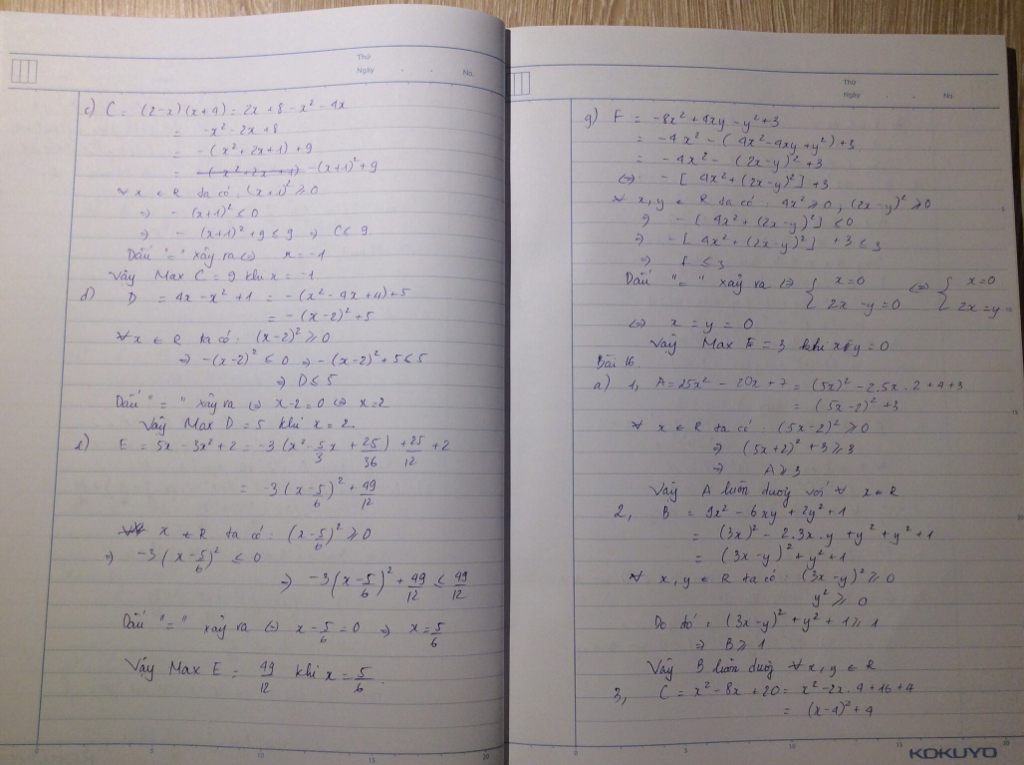 Thứ
Ngày . . No.
c) C = (2-x)(x+4) = 2x + 8 - x² - 4x
= -x² - 2x + 8
= -(x² + 2x + 1) + 9
= -(x+1)² + 9
∀ x ∈ R ta có: (x+1)² ≥ 0
⇒ -(x+1)² ≤ 0
⇒ -(x+1)² + 9 ≤ 9 ⇒ C ≤ 9
Dấu "=" xảy ra ⇔ x = -1
Vậy Max C = 9 khi x = -1
d) D = 4x - x² + 1 = -(x² - 4x + 4) + 5
= -(x-2)² + 5
∀ x ∈ R ta có: (x-2)² ≥ 0
⇒ -(x-2)² ≤ 0 ⇒ -(x-2)² + 5 ≤ 5
⇒ D ≤ 5
Dấu "=" xảy ra ⇔ x-2=0 ⇔ x=2
Vậy Max D = 5 khi x = 2
e) E = 5x - 3x² + 2 = -3(x² - 5/3 x + 25/36) + 25/12 + 2
= -3(x - 5/6)² + 49/12
x ∈ R ta có: (x - 5/6)² ≥ 0
⇒ -3(x - 5/6)² ≤ 0
⇒ -3(x - 5/6)² + 49/12 ≤ 49/12
Dấu "=" xảy ra ⇔ x - 5/6 = 0 ⇒ x = 5/6
Vậy Max E = 49/12 khi x = 5/6
0 5 10 15 20
Thứ
Ngày . . No.
g) F = -8x² + 4xy - y² + 3
= -4x² - (4x² - 4xy + y²) + 3
= -4x² - (2x-y)² + 3
⇔ -[4x² + (2x-y)²] + 3
∀ x, y ∈ R ta có: 4x² ≥ 0; (2x-y)² ≥ 0
⇒ -[4x² + (2x-y)²] ≤ 0
⇒ -[4x² + (2x-y)²] + 3 ≤ 3
⇒ F ≤ 3
Dấu "=" xảy ra ⇔ { x=0 ⇔ { x=0
2x-y=0 2x=y
⇔ x = y = 0
Vậy Max F = 3 khi x=y=0
Bài 16
a) 1, A = 25x² - 20x + 7 = (5x)² - 2.5x.2 + 4 + 3
= (5x-2)² + 3
∀ x ∈ R ta có: (5x-2)² ≥ 0
⇒ (5x+2)² + 3 ≥ 3
⇒ A ≥ 3
Vậy A luôn dương với ∀ x ∈ R
2, B = 9x² - 6xy + 2y² + 1
= (3x)² - 2.3x.y + y² + y² + 1
= (3x-y)² + y² + 1
∀ x, y ∈ R ta có: (3x-y)² ≥ 0
y² ≥ 0
Do đó: (3x-y)² + y² + 1 ≥ 1
⇒ B ≥ 1
Vậy B luôn dương ∀ x, y ∈ R
3, C = x² - 8x + 20 = x² - 2x.4 + 16 + 4
= (x-4)² + 4
0 5 10 15 20
KOKUYO